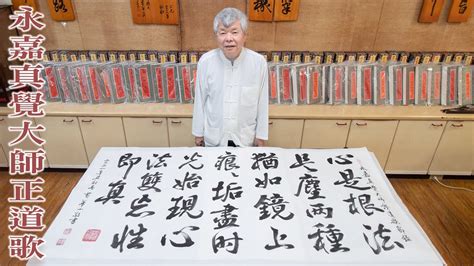 永嘉真覺大師正道歌
心是根法
是塵兩種
猶如鏡上
痕垢盡時
光始現心
法雙忘性
即真